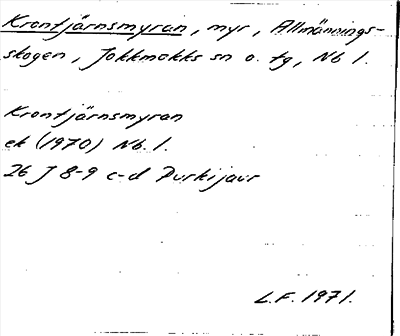 Krontjärnsmyran, myr, Allmännings-
skogen, Jokkmokks sn o. tg, Nb l.
Krontjärnsmyran
ek (1970) Nb. l.
26 J 8-9 c-d Purkijaur
L.F. 1971.